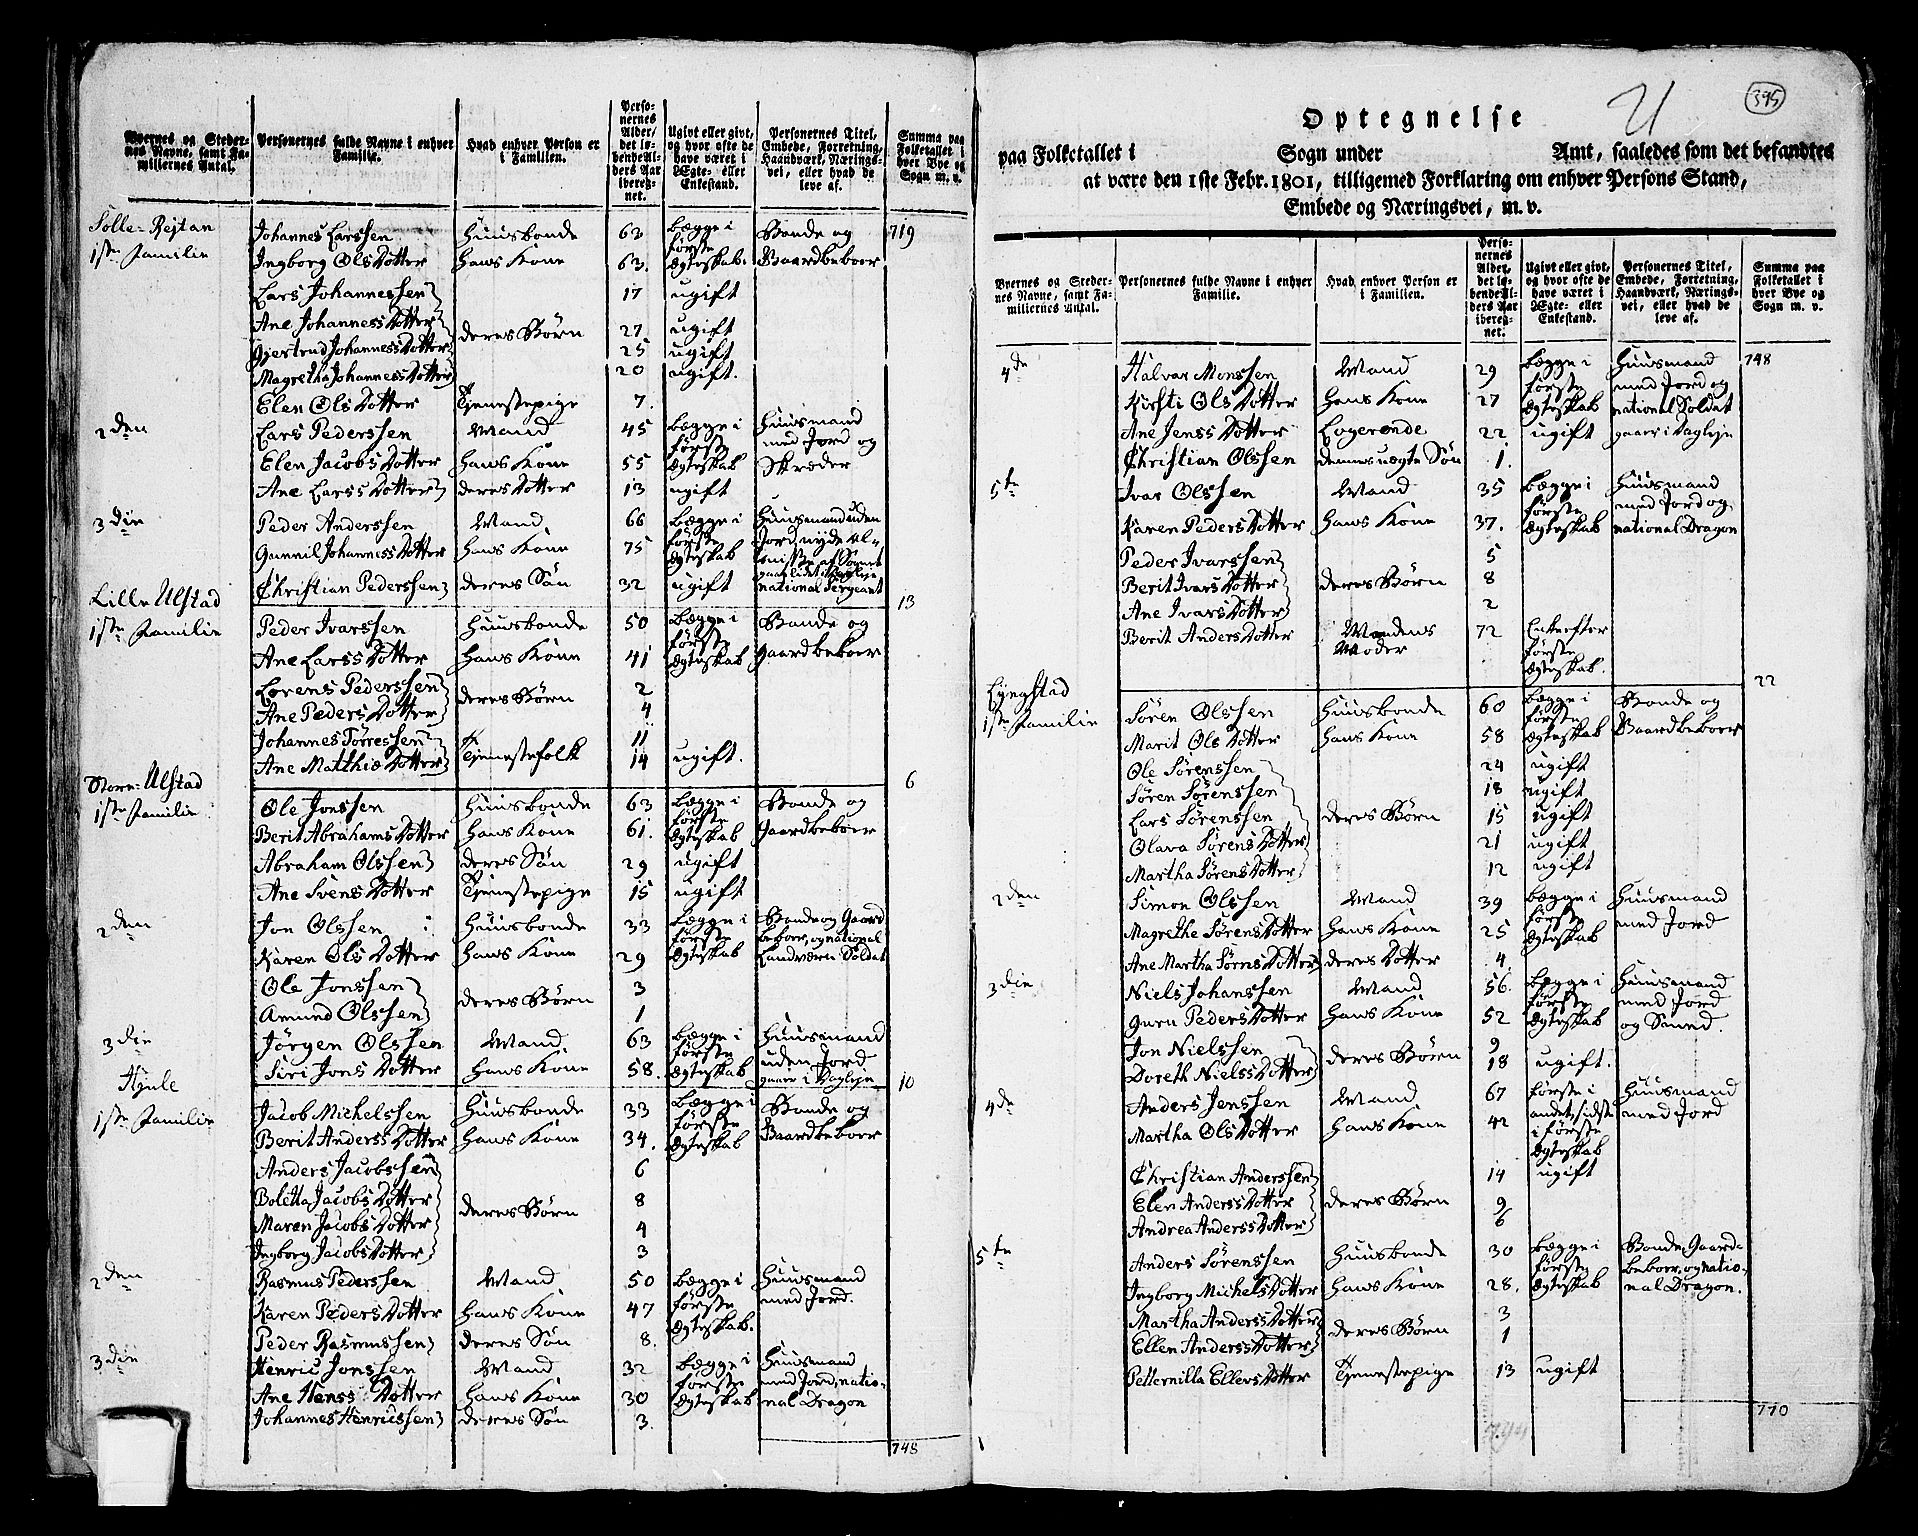 Byernes og Steder-
nes Navne, samt Fa-
miliernes Antal.
Personernes fulde Navne i enhver
Familie.
Hvad enhver Person er
i Familien.
Perso-
nernes
Alder,
det lø-
bende Al-
ders Aar
ibereg-
net.
Ugivt eller givt,
og hvor ofte de
have været i
Ægte- eller
Enkestand.
Personernes Titel,
Embede, Forretning,
Haandværk, Nærings-
vei, eller hvad de
leve af.
Summa paa
Folketallet i
hver Bye og
Sogn m. v.
Solle-Rejtan
1ste Familie
Johannes Larssen Huusbonde 63 begge i første Ægteskab. Bonde og Gaardbeboer 719
Ingborg Ols Dotter Hans Kone 63.
Lars Johannessen 17 ugift
Ane Johannes Dotter deres Børn 27 ugift
Gjertrud Johannes Dotter 25 ugift
Magretha Johannes Dotter 20 ugift.
Elen Ols Dotter Tjenestepige 7.
2den Lars Pederssen Mand 45 begge i første Ægteskab Huusmand med Jord og Skræder
Elen Jacobs Dotter Hans Kone 55
Ane Larss Dotter deres Dotter 13 ugift
3die Peder Anderssen Mand 66 begge i første Ægteskab Huusmand uden Jord, nyde Al-
Gunnil Johannes Dotter Hans Kone 75
Christian Pederssen deres Søn 32 ugift national Sergeant
13
Lille Ulstad
1ste Familie
Peder Ivarssen Huusbonde 50 begge i første Ægteskab Bonde og Gaardbeboer
Ane Larss Dotter Hans Kone 41
Lorens Pederssen deres Børn 2
Ane Peders Dotter 4
Johannes Tørressen Tjenestefolk 11
Ane Matthiæ Dotter 14 ugift.
6
Store-Ulstad
1ste Familie
Ole Jonssen Huusbonde 63 begge i første Ægteskab Bonde og Gaardbeboer
Berit Abrahams Dotter Hans Kone 61.
Abraham Olssen deres Søn 29 ugift
Ane Svens Dotter Tjenestepige 15 ugift
2den Jon Olssen Huusbonde 33 begge i første Ægteskab Bonde og Gaardbeboer, og national Landværn Soldat
Karen Ols Dotter Hans Kone 29
Ole Jonssen deres Børn 3
Amund Olssen 1
3die Jörgen Olssen Mand. 63 begge i første Ægteskab Huusmand uden Jord gaaer i Dagleje
Siri Jons Dotter Hans Kone 58.
10
Hjule
1ste Familie
Jacob Michelssen Huusbonde 33 begge i første Ægteskab Bonde og Gaardbeboer
Berit Anderss Dotter Hans Kone 34.
Anders Jacobssen 6
Boletta Jacobs Dotter deres Børn 8
Maren Jacobs Dotter 4
Ingborg Jacobs Dotter 3
2den Rasmus Pederssen Mand 50 begge i første Ægteskab. Huusmand med Jord.
Karen Peders Dotter Hans Kone 47
Peder Rasmussen deres Søn 8.
3die Henric Jonssen Mand 32 begge i første Ægteskab Huusmand med Jord, natio-
nal Dragon
Ane Henss Dotter Hans Kone 30
Johannes Henricssen deres Søn 3.
748
21
395
Optegnelse
paa Folketallet i Sogn under Amt, saaledes som det befandtes
at være den 1ste Febr. 1801, tilligemed Forklaring om enhver Persons Stand,
Embede og Næringsvei, m. v.
Byernes og Steder-
nes Navne, samt Fa-
miliernes Antal.
Personernes fulde Navne i enhver
Familie.
Hvad enhver Person er
i Familien.
Perso-
nernes
Alder,
det lø-
bende Al-
ders Aar
ibereg-
net.
Ugivt eller givt,
og hvor ofte de
have været i
Ægte- eller
Enkestand.
Personernes Titel,
Embede, Forretning,
Haandværk, Nærings-
vei, eller hvad de
leve af.
Summa paa
Folketallet i
hver Bye og
Sogn m. v.
4de Halvar Monssen Mand 29 begge i første Ægteskab Huusmand med Jord og national Soldat 748
Kirsti Ols Dotter Hans Kone 27
Ane Jenss Dotter Logerende 22 ugift gaaer i Dagleje
Christian Olssen dennes uægte Søn 1.
5te Ivar Olssen Mand 35 begge i første Ægteskab Huusmand med Jord og national Dragon
Karen Peders Dotter Hans Kone 37.
Peder Ivarssen 5
Berit Ivars Dotter deres Børn 8
Ane Ivars Dotter 2
Berit Anders Dotter Mandens Moder 72 Enke efter første Ægteskab.
22
Lyngstad
1ste Familie
Søren Olssen Huusbonde 60 begge i første Ægteskab Bonde og Gaardbeboer
Marit Ols Dotter Hans Kone 58
Ole Sørenssen 24 ugift
Søren Sørenssen 18 ugift
Lars Sørenssen deres Børn 15 ugift
Olava Sørens Dotter 21 ugift
Martha Sørens Dotter 12 ugift
2den Simon Olssen Mand 39 begge i første Ægteskab Huusmand med Jord
Magrethe Sørens Dotter Hans Kone 25
Ane Martha Sørns Dotter deres Dotter 4
3die Niels Johanssen Mand 56. begge i første Ægteskab Huusmand med Jord og Smed.
Guru Peders Dotter Hans Kone 52
Jon Nielssen deres Børn 9
Doreth Nielss Dotter 18 ugift.
4de Anders Jenssen Mand 67 første i andet, sidste i første Ægteskab Huusmand med Jord
Martha Ols Dotter Hans Kone 42
Christian Anderssen 14 ugift
Elen Anderss Dotter deres Børn 9
Andrea Anderss Dotter 6
5te Anders Sørenssen Huusbonde 30 begge i første Ægteskab Bonde, Gaard-
beboer, og natio-
nal Dragon.
Ingborg Michels Dotter Hans Kone 28.
Martha Anderss Dotter deres Børn 3
Ellen Anderss Dotter 1
Petternilla Ellers Dotter Tjenestepige 13 ugift
770